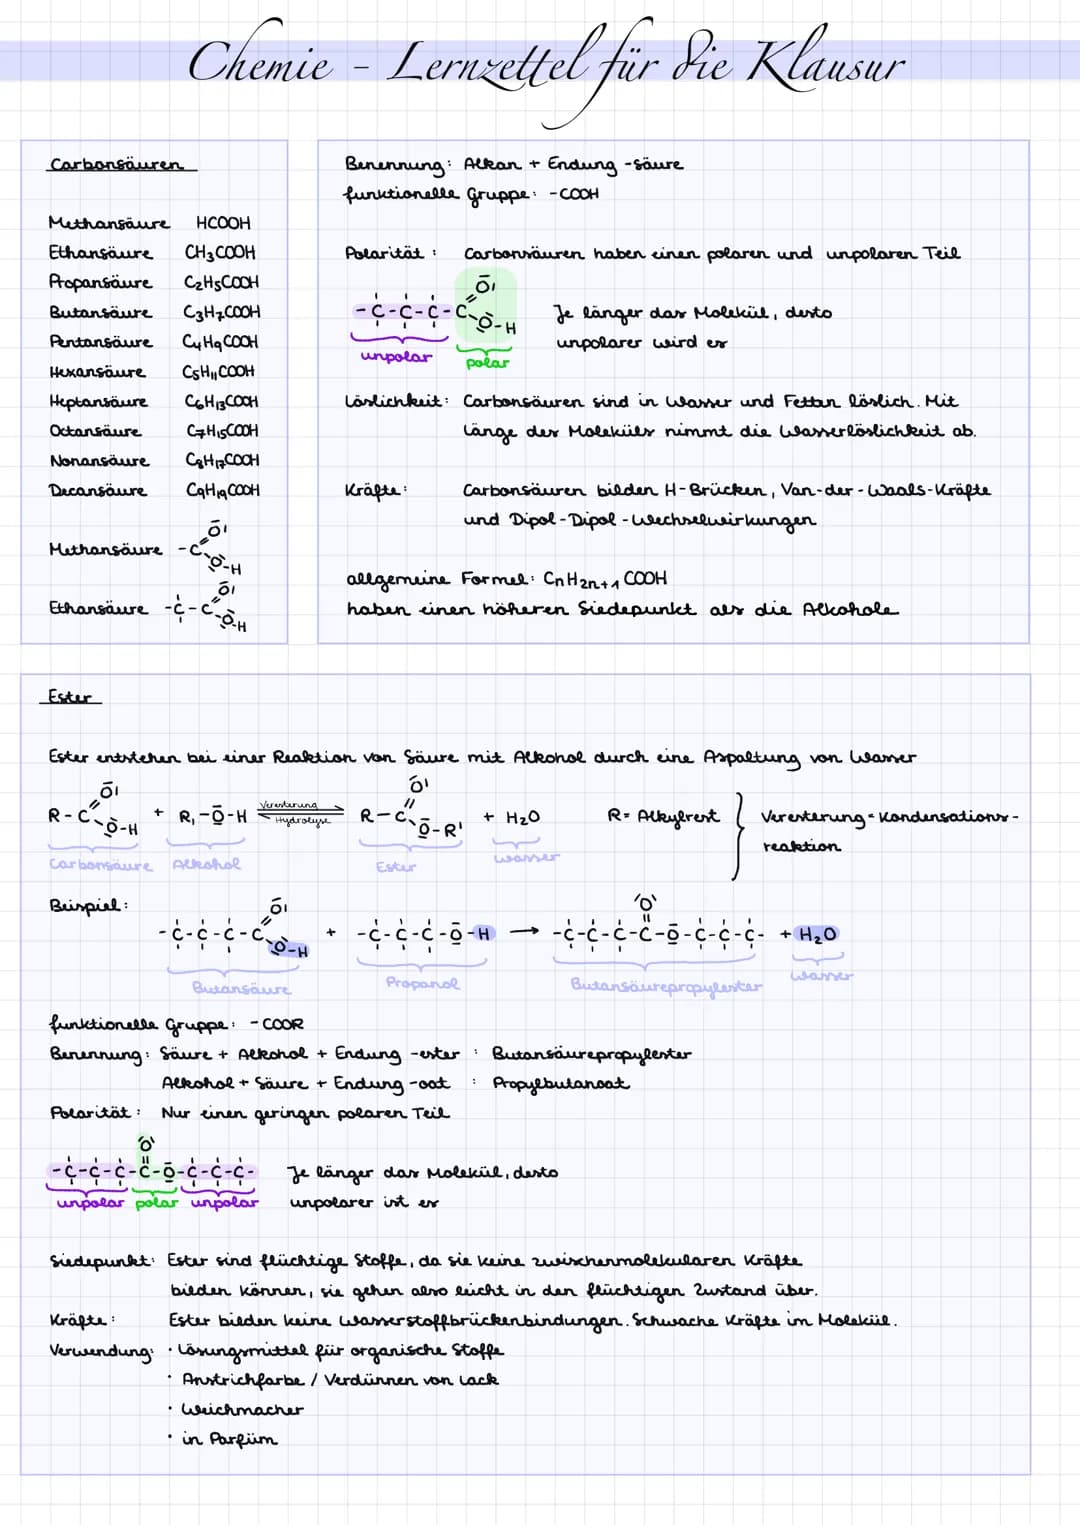 Chemie - Lernzettel für die Klausur
Carbonsäuren
Methansäure HCOOH
Ethansäure CH3COOH
Propansäure C2H5COOH
Butansäure C3H7COOH
Pentansäure C4H9COOH
Hexansäure C5H11COOH
Heptansäure C6H13COOH
Octansäure C7H15COOH
Nonansäure C8H17COOH
Decansäure C9H19COOH
Methansäure -C O O-H
Ethansäure -C-C O O-H
Benennung: Alkan + Endung -säure
funktionelle Gruppe: -COOH
Polarität: Carbonsäuren haben einen polaren und unpolaren Teil
-C-C-C-C O O-H
Je länger das Molekül, desto
unpolarer wird es
unpolar polar
Löslichkeit: Carbonsäuren sind in Wasser und Fetten löslich. Mit
Länge des Moleküls nimmt die Wasserlöslichkeit ab.
Kräfte: Carbonsäuren bilden H-Brücken, Van-der-Waals-Kräfte
und Dipol-Dipol-Wechselwirkungen
allgemeine Formel: CnH2n+1COOH
haben einen höheren Siedepunkt als die Alkohole
Ester
Ester entstehen bei einer Reaktion von Säure mit Alkohol durch eine Aspaltung von Wasser
R-C O O-H + R1-O-H Veresterung Hydrolyse R-C O O-R' + H2O R= Alkylrest Veresterung=Kondensations-
reaktion
Carbonsäure Alkohol Ester Wasser
Beispiel:
-C-C-C-C O O-H + -C-C-C-O-H → -C-C-C-C O -O-C-C-C- + H2O
Butansäure Propanol Butansäurepropylester Wasser
funktionelle Gruppe: -COOR
Benennung: Säure + Alkohol + Endung -ester : Butansäurepropylester
Alkohol + Säure + Endung -oat : Propylbutanoat
Polarität: Nur einen geringen polaren Teil
-C-C-C-C O -O-C-C-C- Je länger das Molekül, desto
unpolar polar unpolar unpolarer ist es
Siedepunkt: Ester sind flüchtige Stoffe, da sie keine zwischenmolekularen Kräfte
bilden können, sie gehen also leicht in den flüchtigen Zustand über.
Kräfte: Ester bilden keine Wasserstoffbrückenbindungen. Schwache Kräfte im Molekül.
Verwendung: · Lösungsmittel für organische Stoffe
· Anstrichfarbe / Verdünnen von Lack
· Weichmacher
· in Parfüm